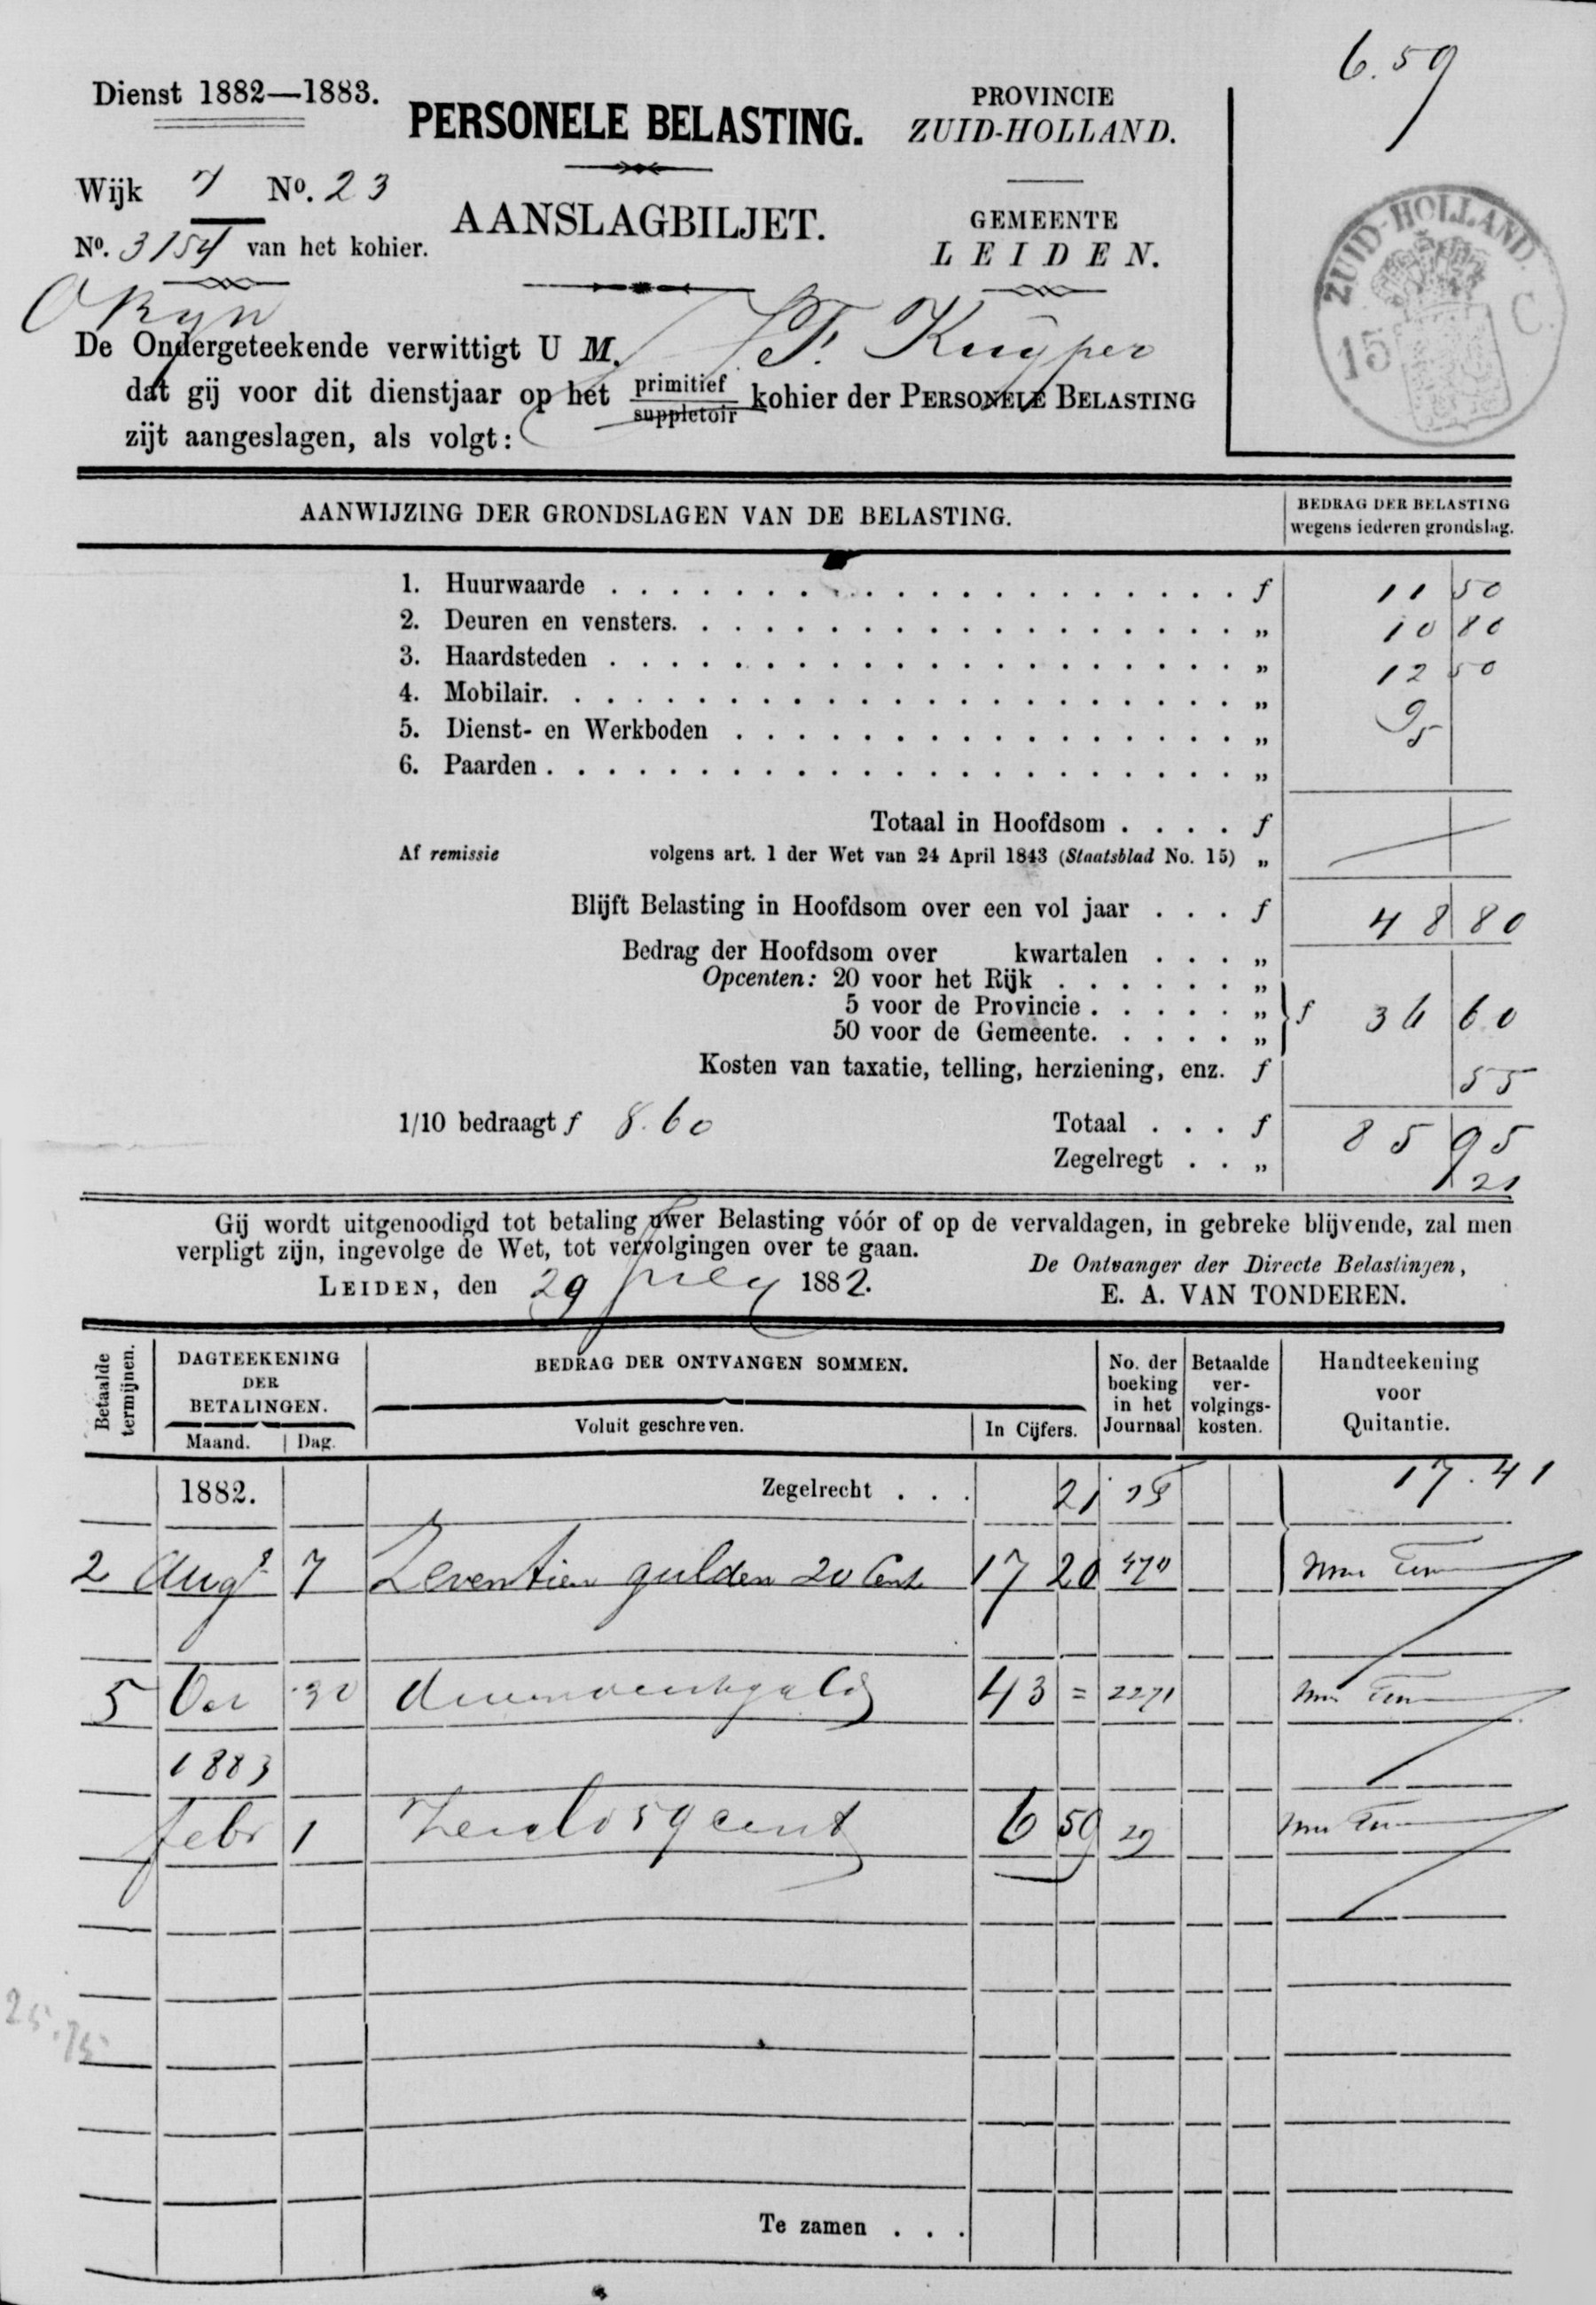 6.59
Dienst 1882—1883.
PERSONELE BELASTING.
PROVINCIE
ZUID-HOLLAND.
Wijk 7 No. 23
AANSLAGBILJET.
GEMEENTE
LEIDEN.
No. 3154 van het kohier.
ZUID-HOLLAND.
15 C.
O Ryn
De Ondergeteekende verwittigt U M. F. Kuyper
dat gij voor dit dienstjaar op het primitief suppletoir kohier der PERSONELE BELASTING
zijt aangeslagen, als volgt:
AANWIJZING DER GRONDSLAGEN VAN DE BELASTING.
BEDRAG DER BELASTING
wegens iederen grondslag.
1. Huurwaarde . . . f 11 50
2. Deuren en vensters. . . . „ 10 80
3. Haardsteden . . . „ 12 50
4. Mobilair. . . . „ 9
5. Dienst- en Werkboden . . . „ 5
6. Paarden . . . „
Totaal in Hoofdsom . . . . f
Af remissie volgens art. 1 der Wet van 24 April 1843 (Staatsblad No. 15) „
Blijft Belasting in Hoofdsom over een vol jaar . . . f 48 80
Bedrag der Hoofdsom over kwartalen . . . „
Opcenten: 20 voor het Rijk . . . . . . „
5 voor de Provincie . . . . . „ f 36 60
50 voor de Gemeente. . . . . „
Kosten van taxatie, telling, herziening, enz. f 55
1/10 bedraagt f 8.60 Totaal . . . f 85 95
Zegelregt . . „ 21
Gij wordt uitgenoodigd tot betaling uwer Belasting vóór of op de vervaldagen, in gebreke blijvende, zal men
verpligt zijn, ingevolge de Wet, tot vervolgingen over te gaan.
De Ontvanger der Directe Belastingen,
LEIDEN, den 29 July 1882.
E. A. VAN TONDEREN.
Betaalde termijnen.
DAGTEEKENING
DER
BETALINGEN.
Maand. Dag.
BEDRAG DER ONTVANGEN SOMMEN.
Voluit geschreven. In Cijfers.
No. der
boeking
in het
Journaal
Betaalde
ver-
volgings-
kosten.
Handteekening
voor
Quitantie.
1882. Zegelrecht . . . 21 17.41
2 Augs 7 Zeventien gulden 20 Cent 17 20 470
5 Oct 30 43 = 2271
1883
febr 1 59 cent 6 59 29
25.75
Te zamen . . .